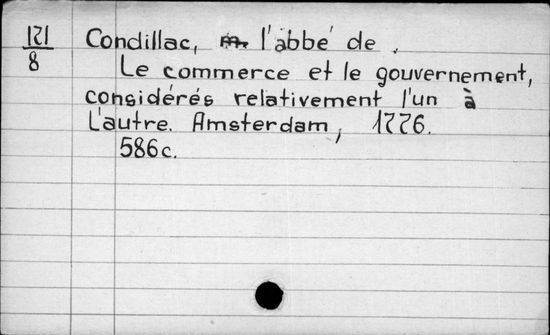 121
8
Condillac, l'abbé de.
Le commerce et le gouvernement,
considérés relativement l'un à
L'autre. Amsterdam, 1776.
586c.